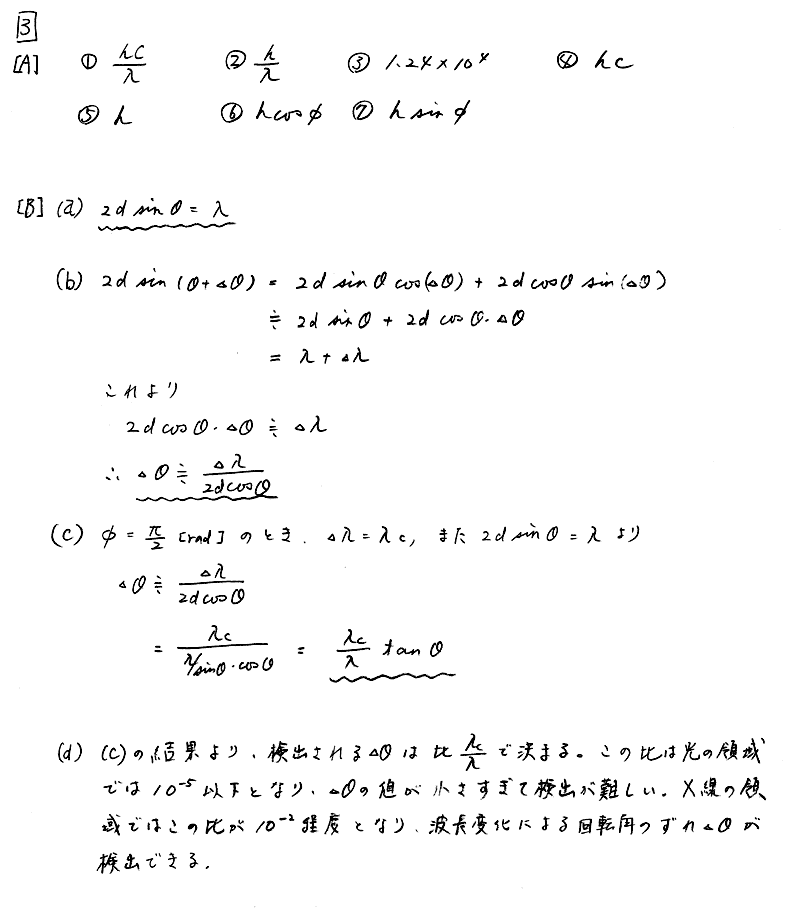 3
[A] ① hc/λ ② h/λ ③ 1.24×10⁴ ④ hc
⑤ h ⑥ h cos φ ⑦ h sin φ
[B] (a) 2d sin θ = λ
(b) 2d sin (θ+△θ) = 2d sin θ cos(△θ) + 2d cos θ sin(△θ)
≒ 2d sin θ + 2d cos θ・△θ
= λ + △λ
これより
2d cos θ・△θ ≒ △λ
∴ △θ ≒ △λ/2d cos θ
(c) φ = π/2 [rad] のとき、△λ = λc, また 2d sin θ = λ より
△θ ≒ △λ/2d cos θ
= λc/(λ/sin θ・cos θ) = λc/λ tan θ
(d) (c)の結果より、検出される△θは比 λc/λ で決まる。この比は光の領域
では10⁻⁵以下となり、△θの値が小さすぎて検出が難しい。X線の領
域ではこの比が10⁻²程度となり、波長変化による回転角のずれ△θが
検出できる。